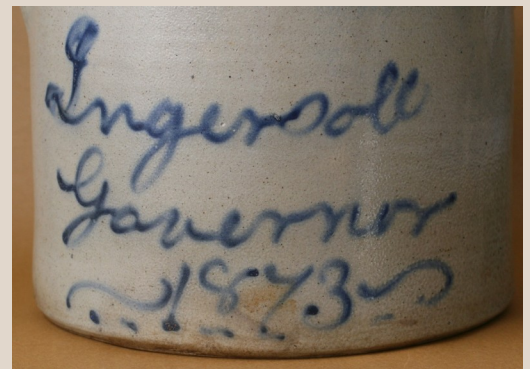 Ingersoll
Governor
1873